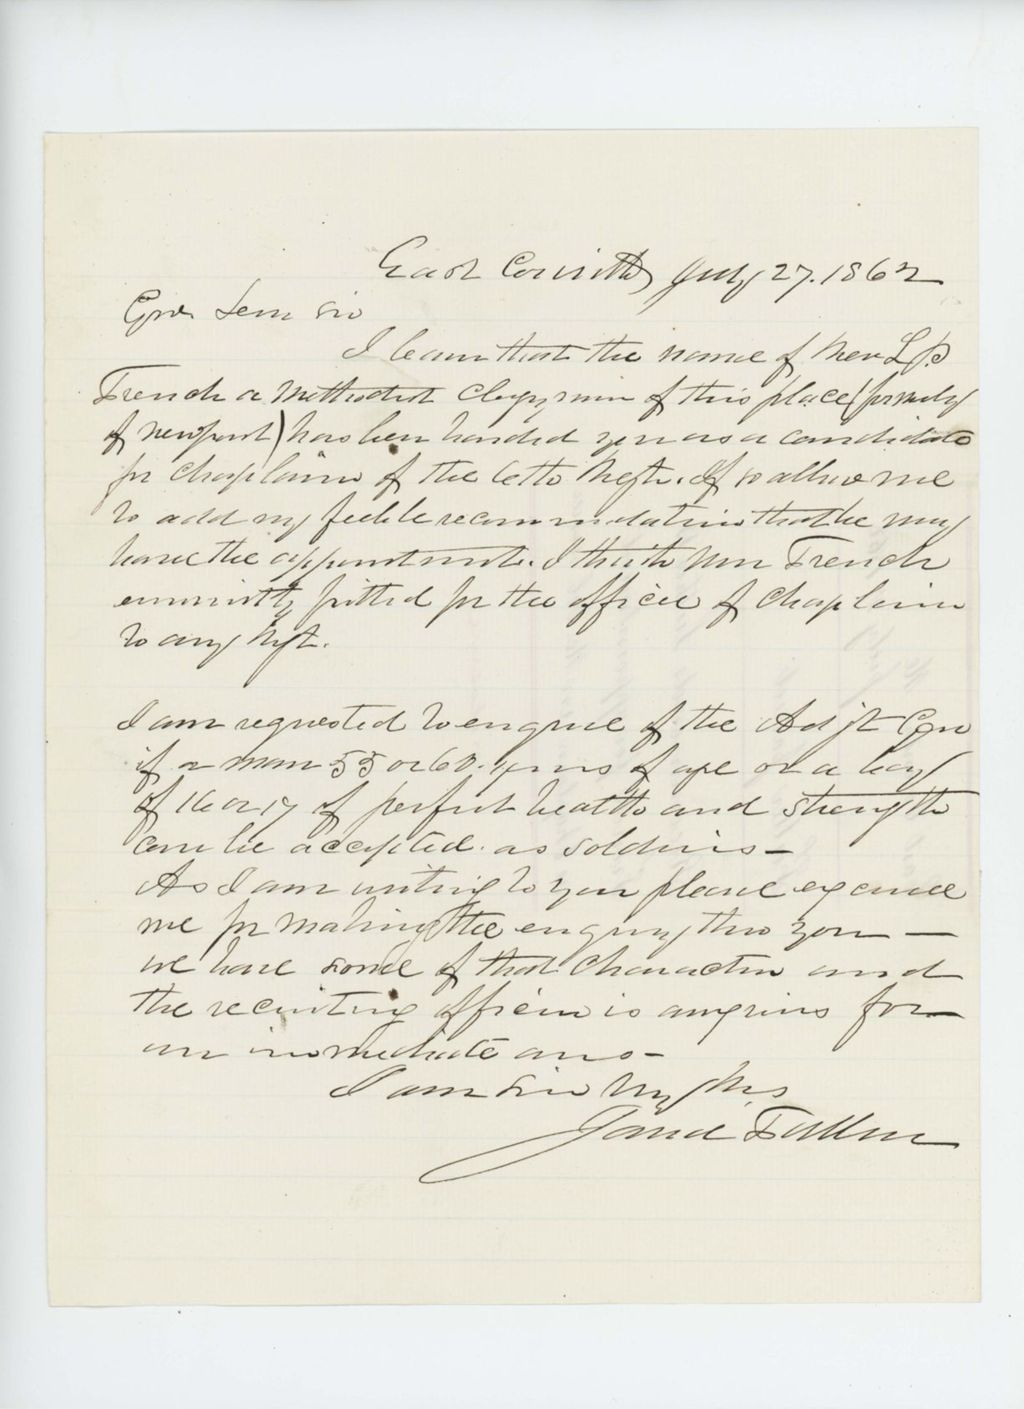 East Corinth July 27. 1862
Gov. Dear Sir
I learn that the name of Rev L. P.
French a Methodist Clergyman of this place (formerly
of Newport) has been handed you as a candidate
for Chaplain of the 16th Regt. If so allow me
to add my feeble recommendation that he may
have the appointment. I think Mr French
eminently fitted for the office of Chaplain
to any Regt.
I am requested to enquire of the Adjt Gen
if a man 55 or 60 years of age or a boy
of 16 or 17 of perfect health and strength
can be accepted as soldiers —
As I am writing to you please excuse
me for making the enquiry thro you —
we have some of that character and
the recruiting officer is anxious for
an immediate ans —
I am Sir Very Res